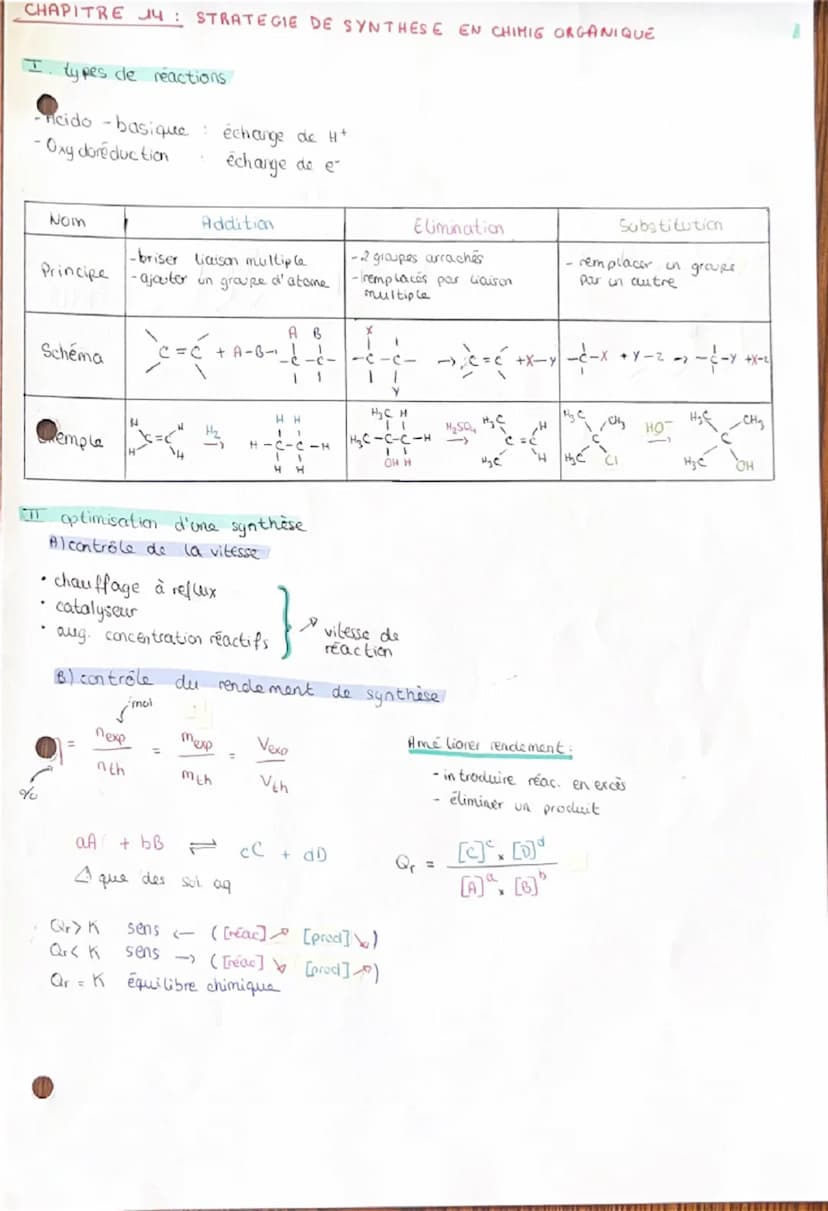 CHAPITRE 14 : STRATEGIE DE SYNTHESE EN CHIMIE ORGANIQUE
I. types de réactions
-Acido-basique : échange de H⁺
-Oxydoréduction : échange de e⁻
Nom Addition Elimination Substitution
Principe
-briser liaison multiple
-ajouter un groupe d'atome
-2 groupes arrachés
-remplacés par liaison multiple
- remplacer un groupe par un autre
Schéma
C=C + A-B → A B -C-C-
X -C-C- Y → C=C +X-Y
-C-X + Y-Z → -C-Y +X-Z
Exemple
H H C=C H H H₂ → H H H-C-C-H H H
H₃C H H₃C-C-C-H OH H H₂SO₄ → H₃C H₃C C=C H H
H₃C CH₃ C H₃C Cl HO⁻ → H₃C CH₃ C H₃C OH
II optimisation d'une synthèse
A) contrôle de la vitesse
• chauffage à reflux
• catalyseur
• aug. concentration réactifs
↗ vitesse de
réaction
B) contrôle du rendement de synthèse
mol
= nexp / nth = mexp / mth = Vexp / Vth
%
Améliorer rendement :
- introduire réac. en excès
- éliminer un produit
aA + bB ⇌ cC + dD
⚠ que des sol aq
Qr = [C]ᶜ × [D]ᵈ / [A]ᵃ × [B]ᵇ
Qr > K sens ← ([réac]↗ [prod]↘)
Qr < K sens → ([réac]↘ [prod]↗)
Qr = K équilibre chimique